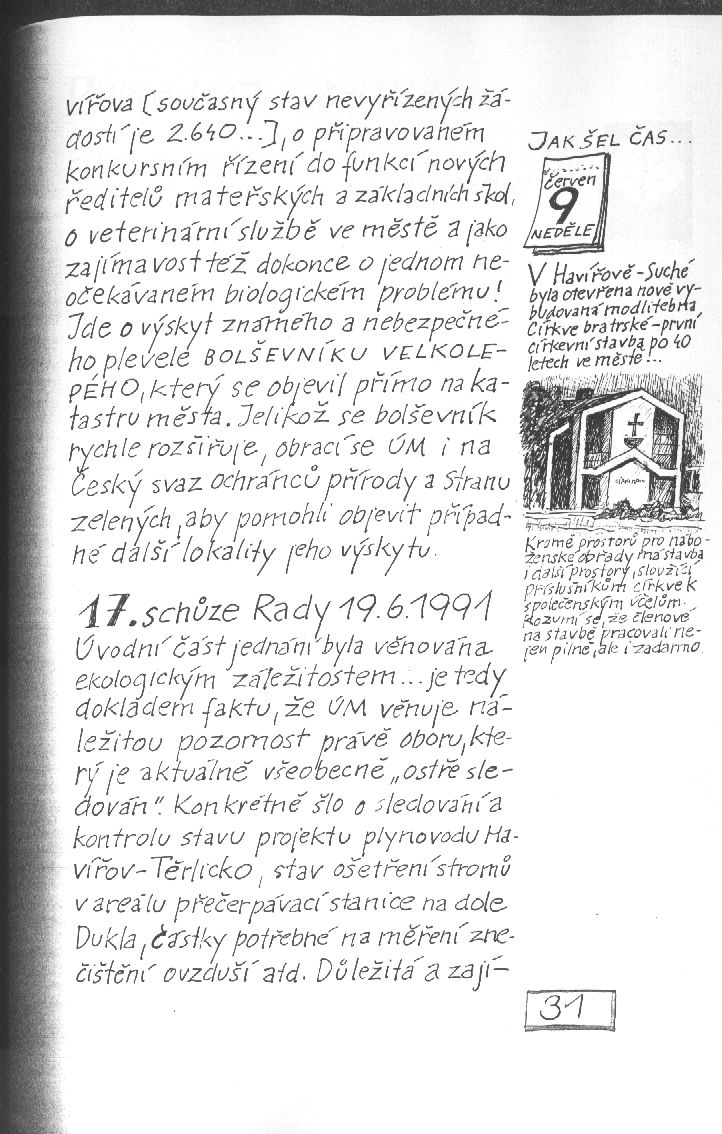 vířova [současný stav nevyřízených žá-
dostí je 2.640...], o připravovaném
konkursním řízení do funkcí nových
ředitelů mateřských a základních škol,
o veterinární službě ve městě a jako
zajímavost též dokonce o jednom ne-
očekávaném biologickém problému!
Jde o výskyt známého a nebezpečné-
ho plevele BOLŠEVNÍKU VELKOLE-
PÉHO, který se objevil přímo na ka-
tastru města. Jelikož se bolševník
rychle rozšiřuje, obrací se ÚM i na
Český svaz ochránců přírody a Stranu
zelených, aby pomohli objevit případ-
né další lokality jeho výskytu.
17. schůze Rady 19.6.1991
Úvodní část jednání byla věnována
ekologickým záležitostem... je tedy
dokladem faktu, že ÚM věnuje ná-
ležitou pozornost právě oboru, kte-
rý je aktuálně všeobecně „ostře sle-
dován". Konkrétně šlo o sledování a
kontrolu stavu projektu plynovodu Ha-
vířov-Těrlicko, stav ošetření stromů
v areálu přečerpávací stanice na dole
Dukla, částky potřebné na měření zne-
čištění ovzduší atd. Důležitá a zají-
JAK ŠEL ČAS...
červen
9
NEDĚLE
V Havířově-Suché
byla otevřena nově vy-
budovaná modlitebna
Církve bratrské-první
církevní stavba po 40
letech ve městě!...
Kromě prostorů pro nábo-
ženské obřady má stavba
i další prostory, sloužící
příslušníkům církve k
společenským účelům.
Rozumí se, že členové
na stavbě pracovali ne-
jen pilně, ale i zadarmo.
31